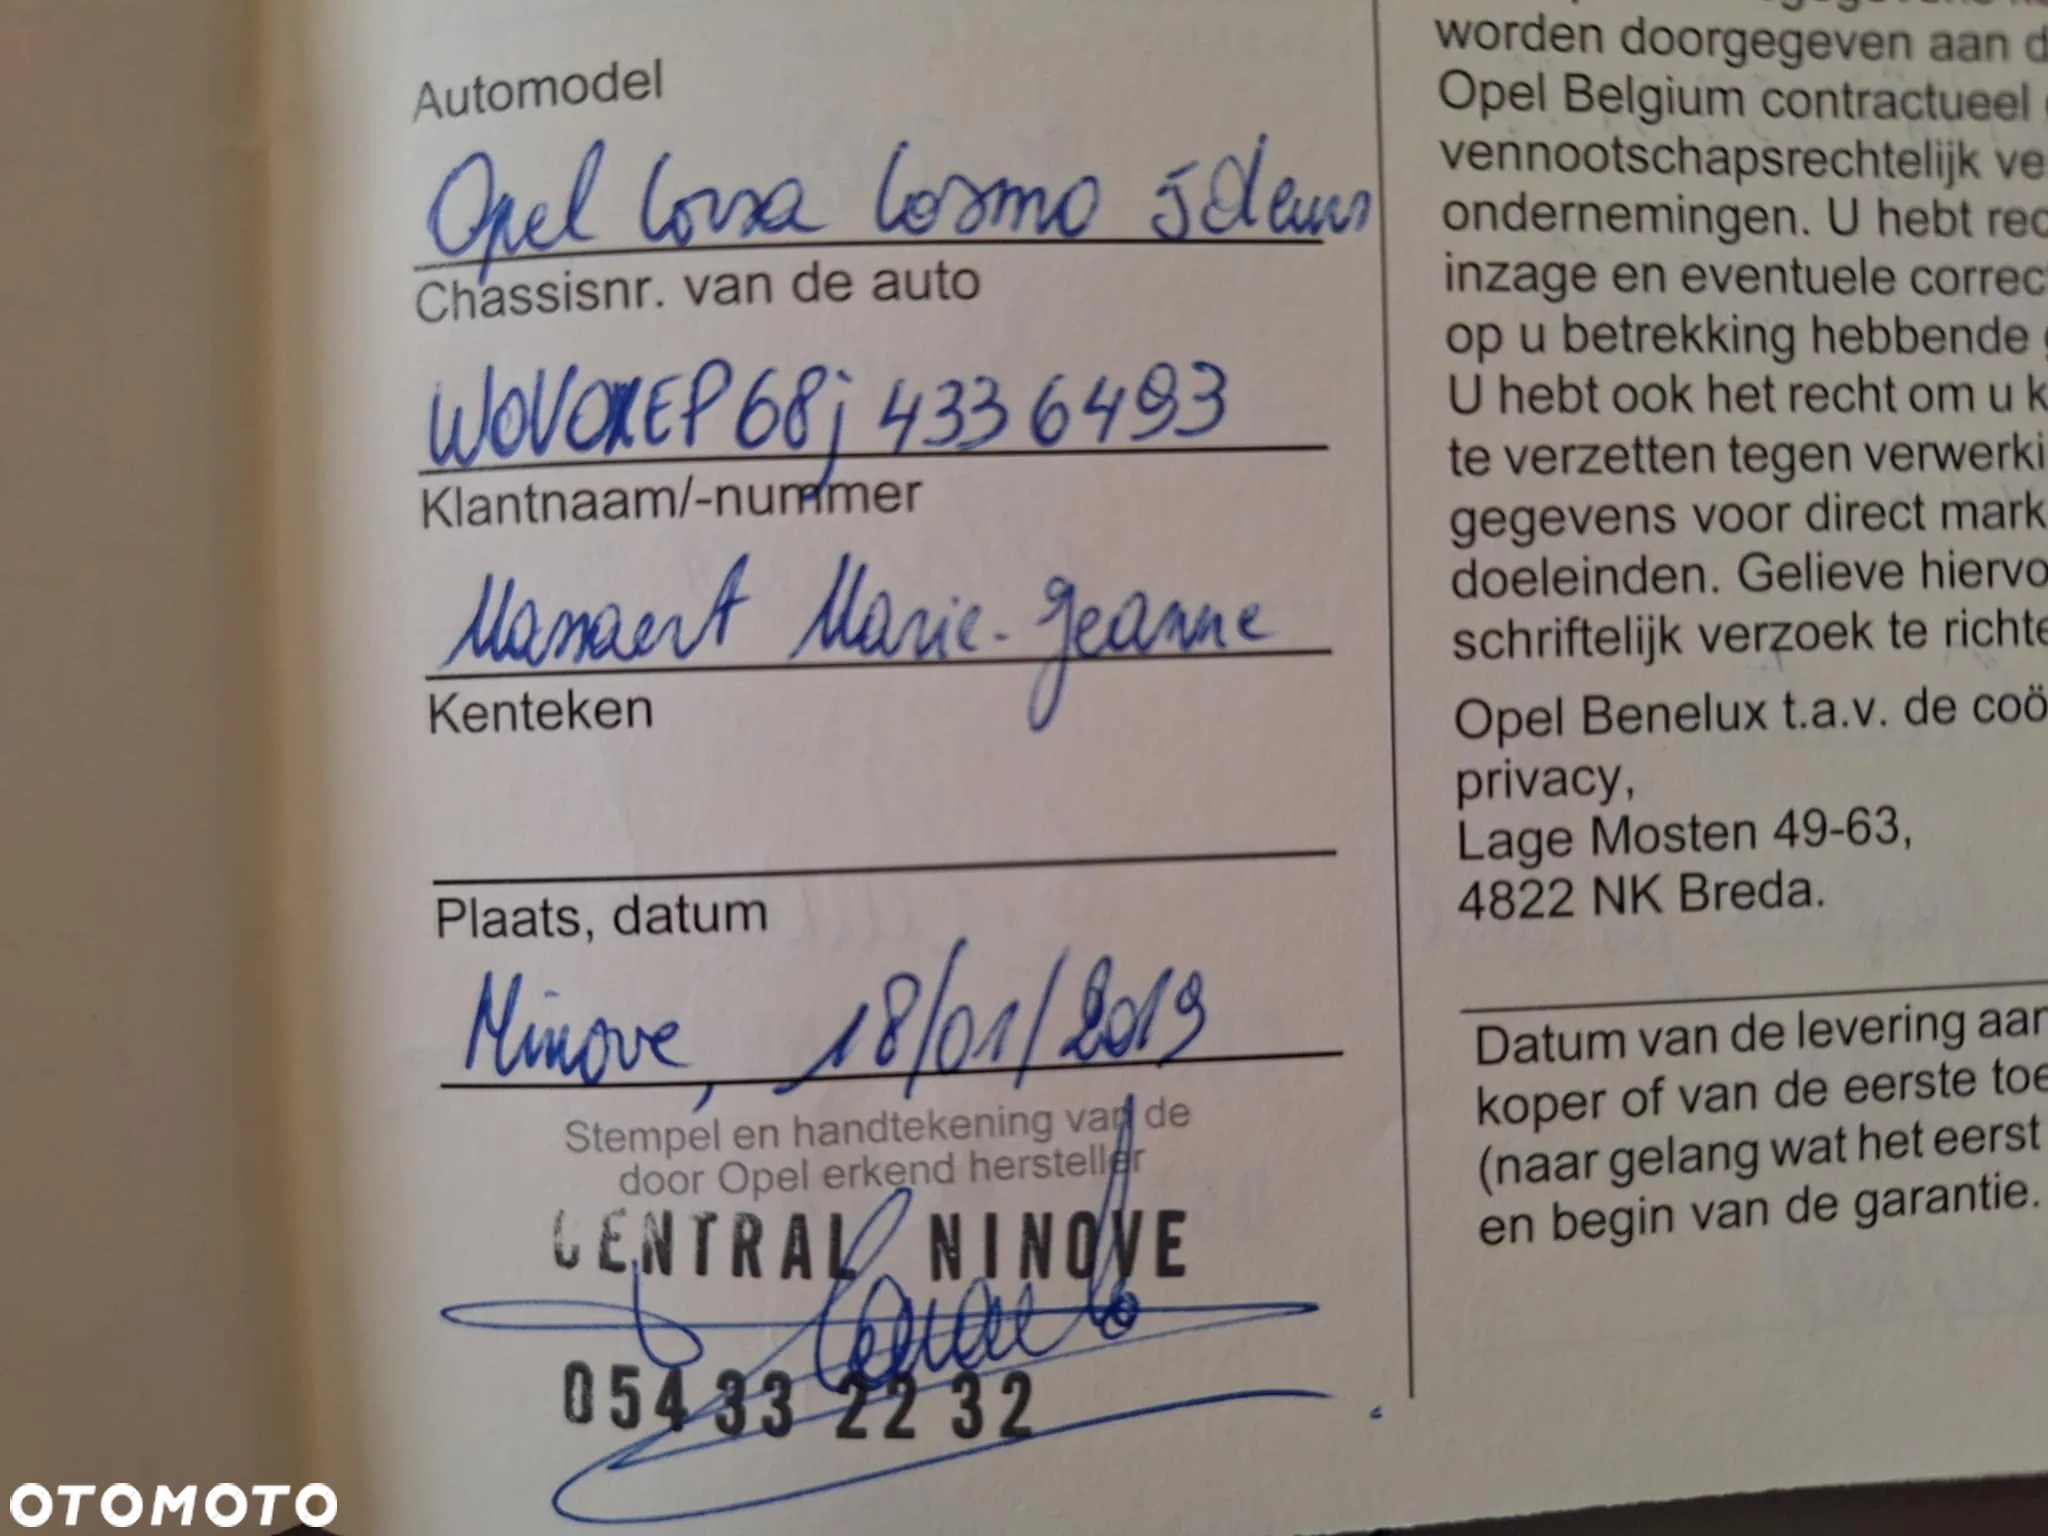 Automodel
Opel Corsa Cosmo 5deurs
Chassisnr. van de auto
WOVOXEP68j4336493
Klantnaam/-nummer
Manaert Marie-Jeanne
Kenteken
Plaats, datum
Ninove, 18/01/2019
Stempel en handtekening van de
door Opel erkend hersteller
CENTRAL NINOVE
054 33 22 32
worden doorgegeven aan d
Opel Belgium contractueel
vennootschapsrechtelijk ve
ondernemingen. U hebt rec
inzage en eventuele correct
op u betrekking hebbende g
U hebt ook het recht om u k
te verzetten tegen verwerki
gegevens voor direct mark
doeleinden. Gelieve hiervo
schriftelijk verzoek te richte
Opel Benelux t.a.v. de coö
privacy,
Lage Mosten 49-63,
4822 NK Breda.
Datum van de levering aan
koper of van de eerste toe
(naar gelang wat het eerst
en begin van de garantie.
OTOMOTO